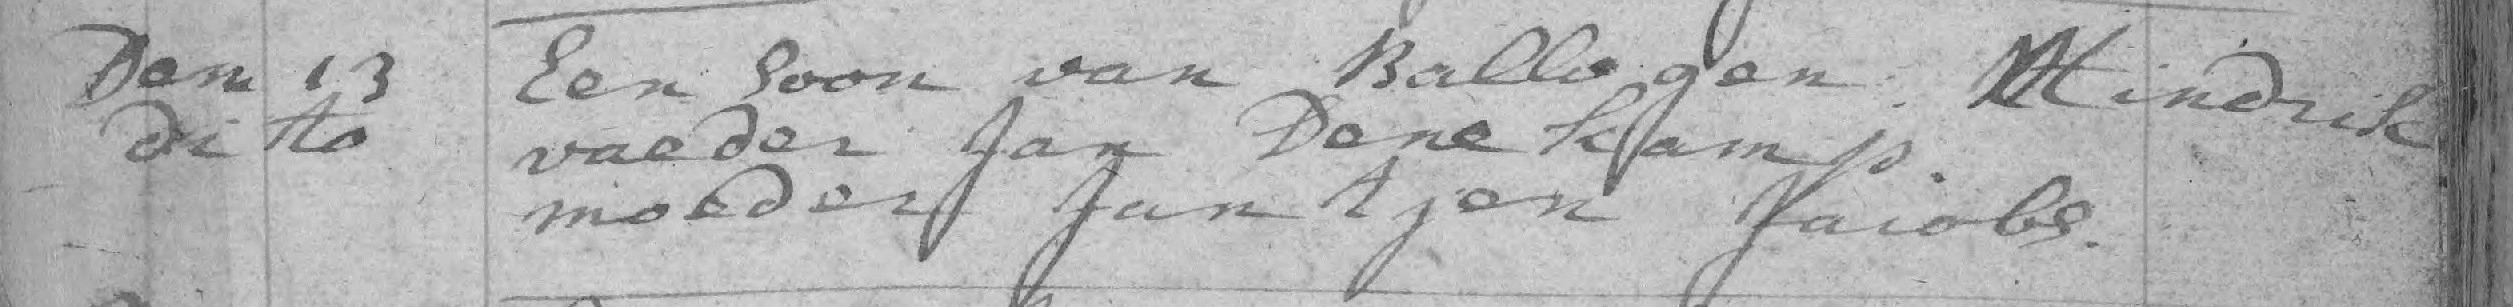 Den 13 Een soon van Ballogen. Hindrik
dito vaeder Jan Denekamp.
moeder Jantjen Jacobs.